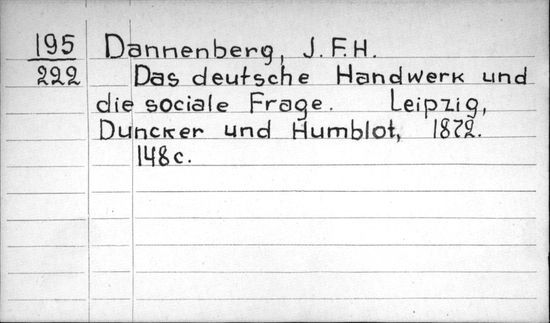 195 Dannenberg, J. F. H.
222 Das deutsche Handwerk und
die sociale Frage. Leipzig,
Duncker und Humblot, 1872.
148 c.